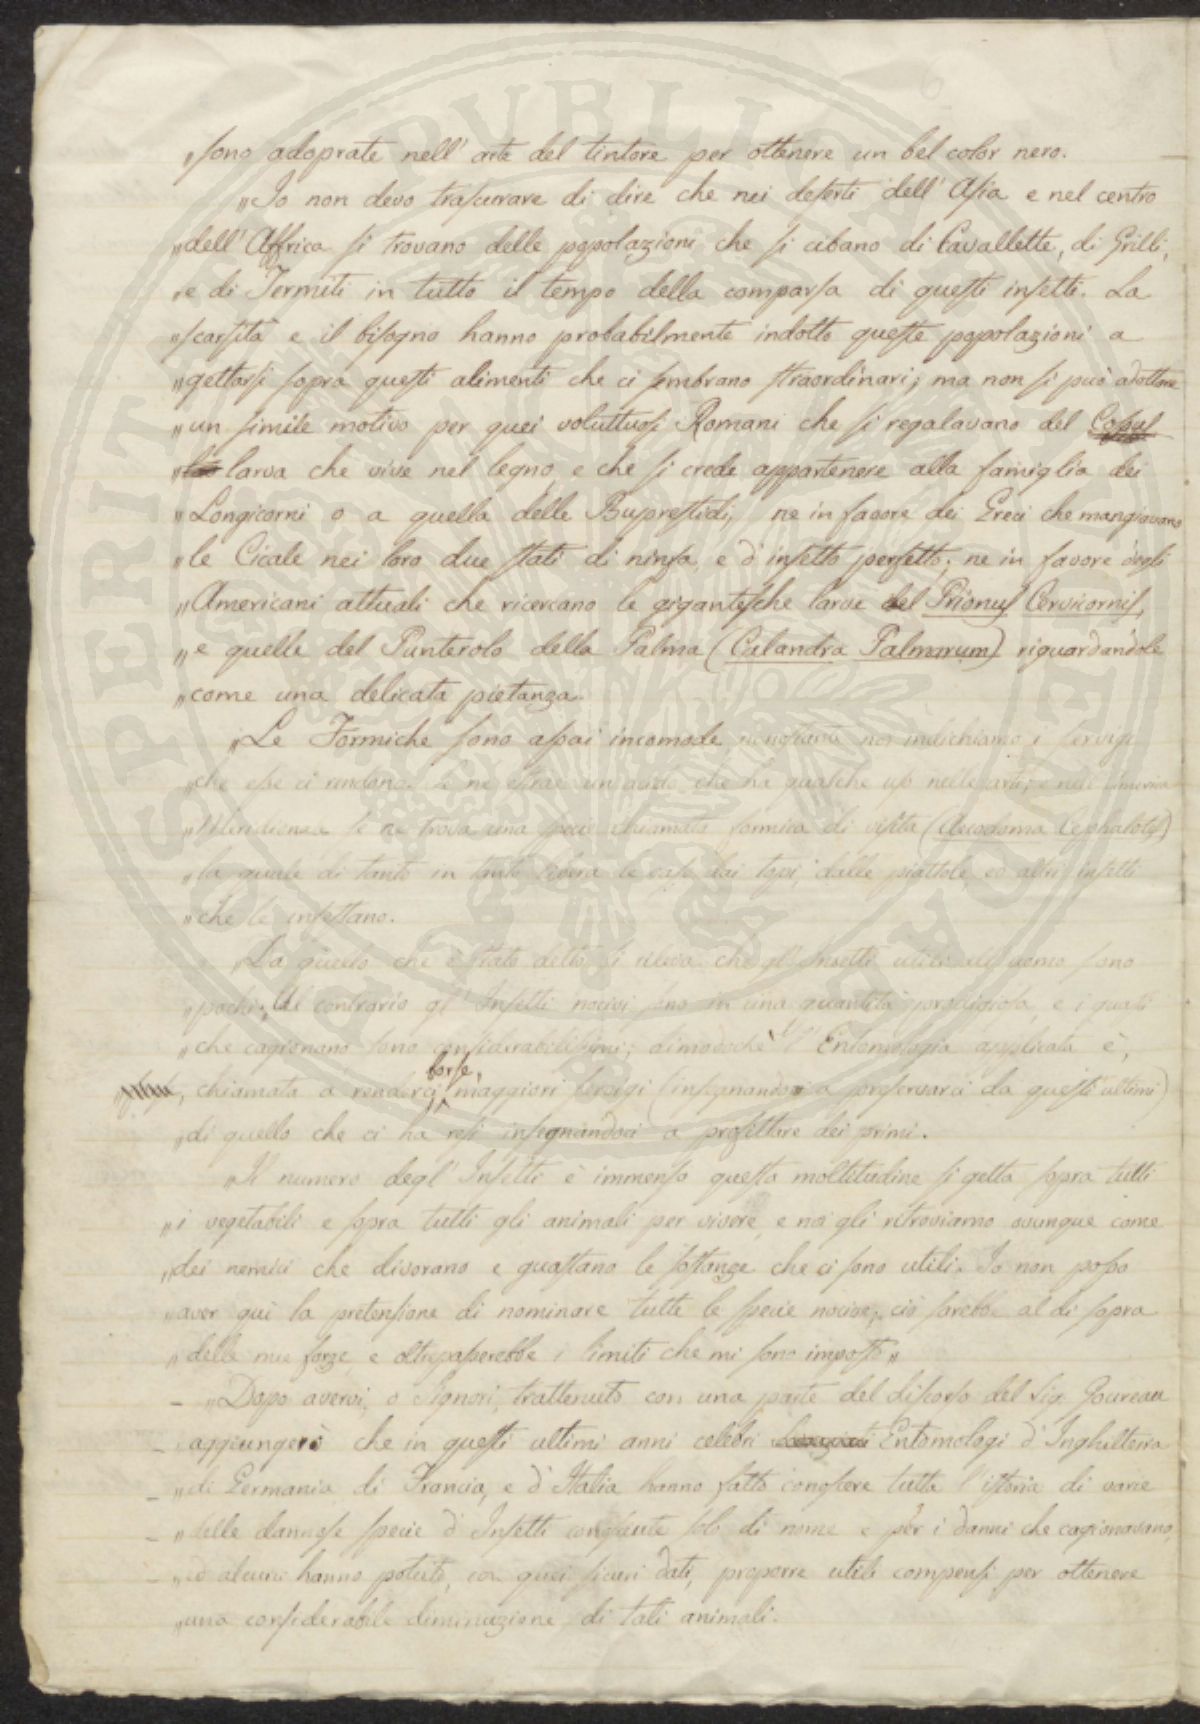 „sono adoprate nell' arte del tintore per ottenere un bel color nero.
„Io non devo trascurare di dire che nei deserti dell' Asia e nel centro
„dell' Affrica si trovano delle popolazioni che si cibano di Cavallette, di Grilli,
„e di Termiti in tutto il tempo della comparsa di questi insetti. La
„scarsità e il bisogno hanno probabilmente indotto queste popolazioni a
„gettarsi sopra questi alimenti che ci sembrano straordinari; ma non si può adottare
„un simile motivo per quei voluttuosi Romani che si regalavano del Cossus
„larva che vive nel legno, e che si crede appartenere alla famiglia dei
„Longicorni o a quella delle Buprestidi, ne in favore dei Greci che mangiavano
„le Cicale nei loro due stati di ninfa, e d' insetto perfetto; ne in favore degli
„Americani attuali che ricercano le gigantesche larve del Prionus Cervicornis,
„e quelle del Punterolo della Palma (Calandra Palmarum) riguardandole
„come una delicata pietanza.
„Le Formiche sono assai incomode, nonostante noi indichiamo i servigi
„che esse ci rendono. Se ne estrae un acido che ha qualche uso nelle arti; e nell' America
„Meridionale se ne trova una specie chiamata formica di visita (Acodoma Cephalotes)
„la quale di tanto in tanto libera le case dai topi, dalle piattole ed altri insetti
„che le infestano.
„Da quello che è stato detto si rileva che gl' Insetti utili all' uomo sono
„pochi; Al contrario gl' Insetti nocivi sono in una quantità prodigiosa, e i guasti
„che cagionano sono considerabilissimi; dimodochè l' Entomologia applicata è,
forse,
chiamata a renderci maggiori servigi (insegnandoci a preservarci da questi ultimi)
„di quello che ci ha resi insegnandoci a profittare dei primi.
„Il numero degl' Insetti è immenso questa moltitudine si getta sopra tutti
„i vegetabili e sopra tutti gli animali per vivere, e noi gli ritroviamo ovunque come
„dei nemici che divorano e guastano le sostanze che ci sono utili. Io non posso
„aver qui la pretensione di nominare tutte le specie nocive; ciò sarebbe al di sopra
„delle mie forze, e oltrepasserebbe i limiti che mi sono imposto„
– „Dopo avervi, o Signori, trattenuto con una parte del discorso del Sig. Goureau
– aggiungerò che in questi ultimi anni celebri Entomologi d' Inghilterra
– „di Germania di Francia, e d' Italia hanno fatto conoscere tutta l' istoria di varie
– „delle dannose specie d' Insetti conosciute solo di nome e per i danni che cagionavano,
– „ed alcuni hanno potuto, con quei sicuri dati, proporre utili compensi per ottenere
„una considerabile diminuzione di tali animali.